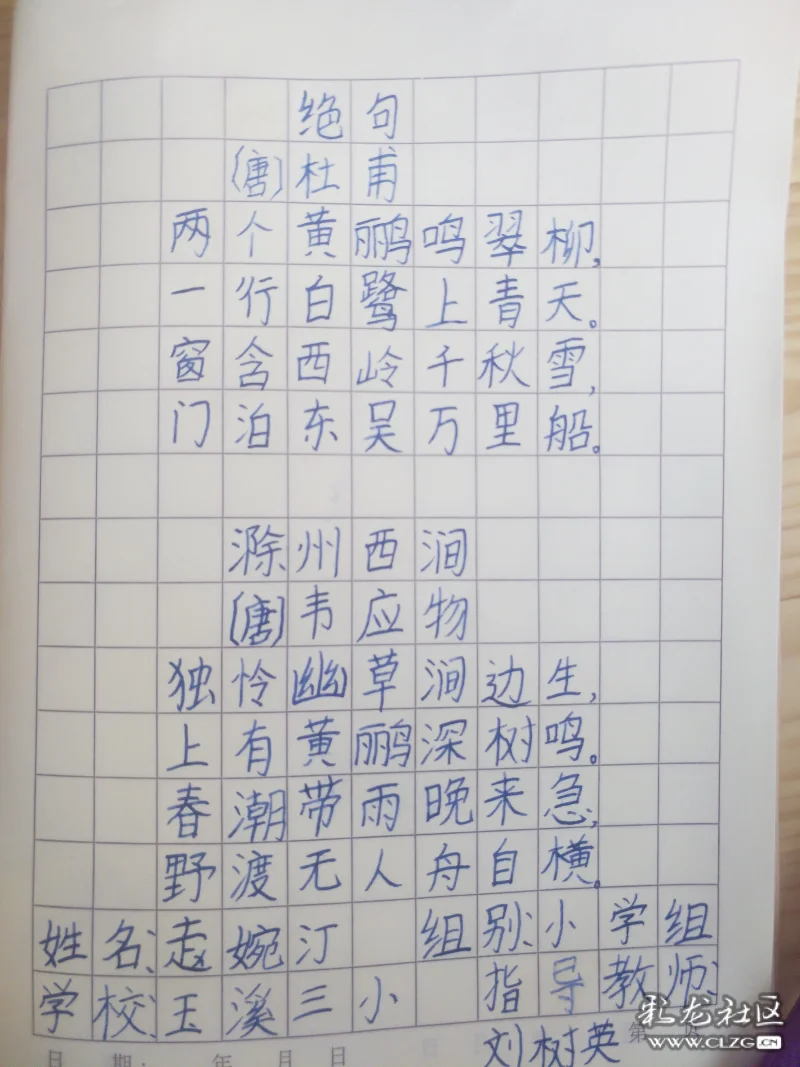 绝句
(唐)杜甫
两个黄鹂鸣翠柳,
一行白鹭上青天。
窗含西岭千秋雪,
门泊东吴万里船。
滁州西涧
(唐)韦应物
独怜幽草涧边生,
上有黄鹂深树鸣。
春潮带雨晚来急,
野渡无人舟自横。
姓名:赵婉汀 组别:小学组
学校:玉溪三小 指导教师:
刘树英
日期: 年 月 日 第 页
彩龙社区
www.CLZG.CN